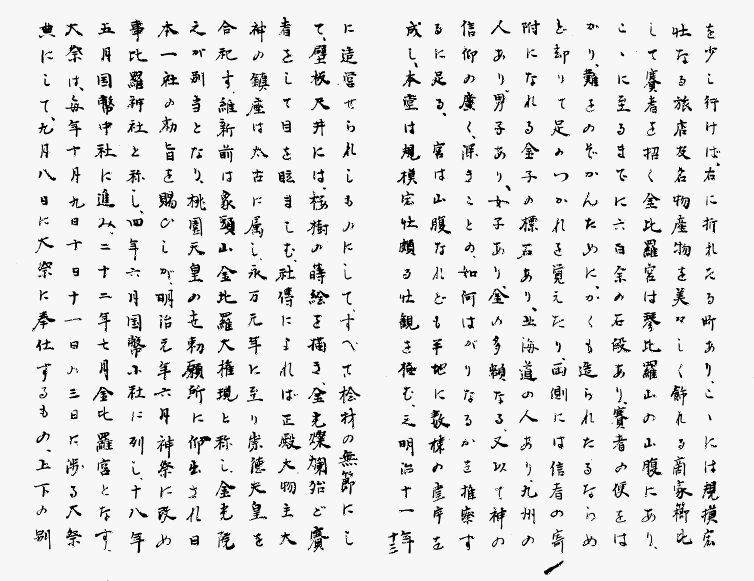 を少し行けば、右に折れたる町あり、こゝには規模宏
壮なる旅店及名物産物を美々しく飾れる商家櫛比
して賽者を招く金比羅宮は琴比羅山の山腹にあり、
こゝに至るまでに六百余の石段あり、賽者の便をは
かり、難をのぞかんためにかくも造られたるならめ
ど却りて足のつかれを覚えたり、両側には信者の寄
附になれる金子の標石あり、北海道の人あり、九州の
人あり、男子あり、女子あり、金の多額なる、又以て神の
信仰の広く、深きことの、如何ばかりなるかを推察す
るに足る、宮は山腹なれども平地に数棟の産宇を
成し、本堂は規模宏壮頗る壮観を極む、之明治十一年
十三
に造営せられしものにして、すべて桧材の無節にし
て、壁板天井には、桜樹の蒔絵を描き、金光燦爛殆ど賽
者をして目を眩ましむ、社傳によれば正殿大物主大
神の鎮座は太古に属し、永万元年に至り崇徳天皇を
合祀す、維新前は象頭山金比羅大権現と称し、金光院
之が別当となり、桃園天皇の世勅願所に仰出され日
本一社の勅旨を賜ひしが、明治元年六月神祭に改め
事比羅神社と称し、四年六月国幣小社に列し、十八年
五月国幣中社に進み、二十二年七月金比羅宮となす、
大祭は、毎年十月九日十日十一日の三日に渉る大祭
典にして、九月八日に大祭に奉仕するもの、上下の別